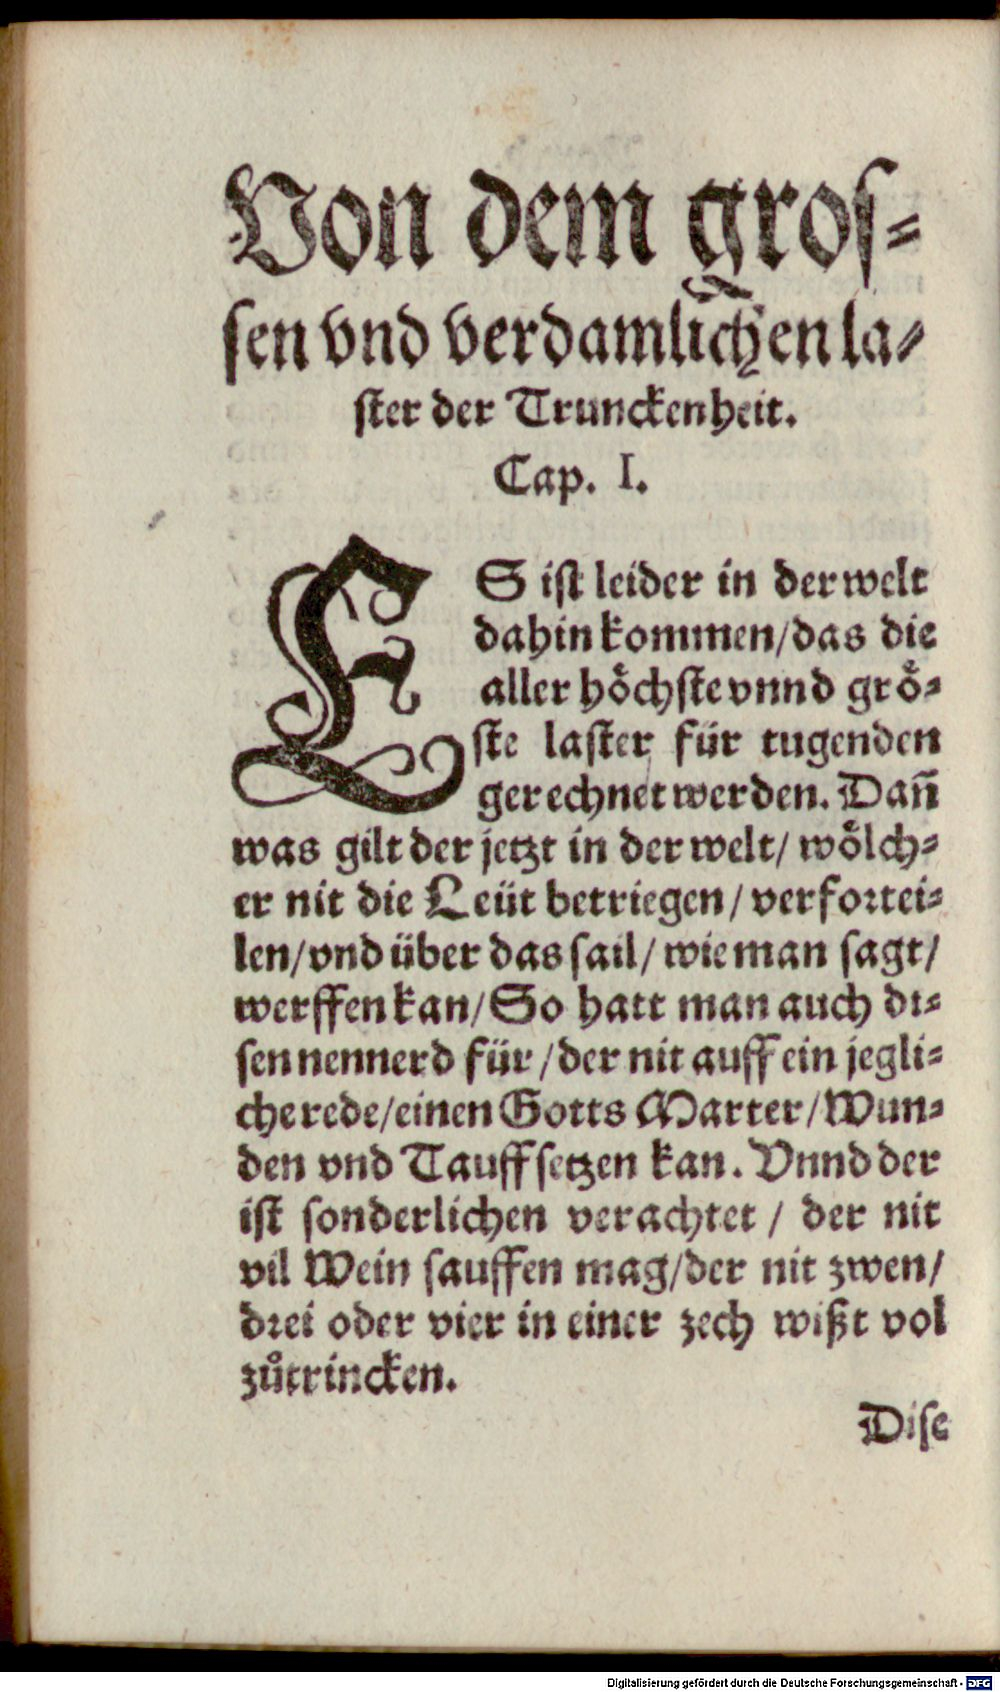 Von dem gros-
sen vnd verdamlichen la-
ster der Trunckenheit.
Cap. I.
ES ist leider in der welt
dahin kommen/das die
aller hoͤchste vnnd groͤ-
ste laster für tugenden
gerechnet werden. Dañ
was gilt der jetzt in der welt/ woͤlch-
er nit die Leüt betriegen/ verfortei-
len/vnd über das sail/ wie man sagt/
werffen kan/ So hatt man auch di-
sen nennerd für/der nit auff ein jegli-
che rede/einen Gotts Marter/Wun-
den vnd Tauff setzen kan. Vnnd der
ist sonderlichen verachtet/ der nit
vil Wein sauffen mag/der nit zwen/
drei oder vier in einer zech wißt vol
zůtrincken.
Dise
Digitalisierung gefördert durch die Deutsche Forschungsgemeinschaft - DFG